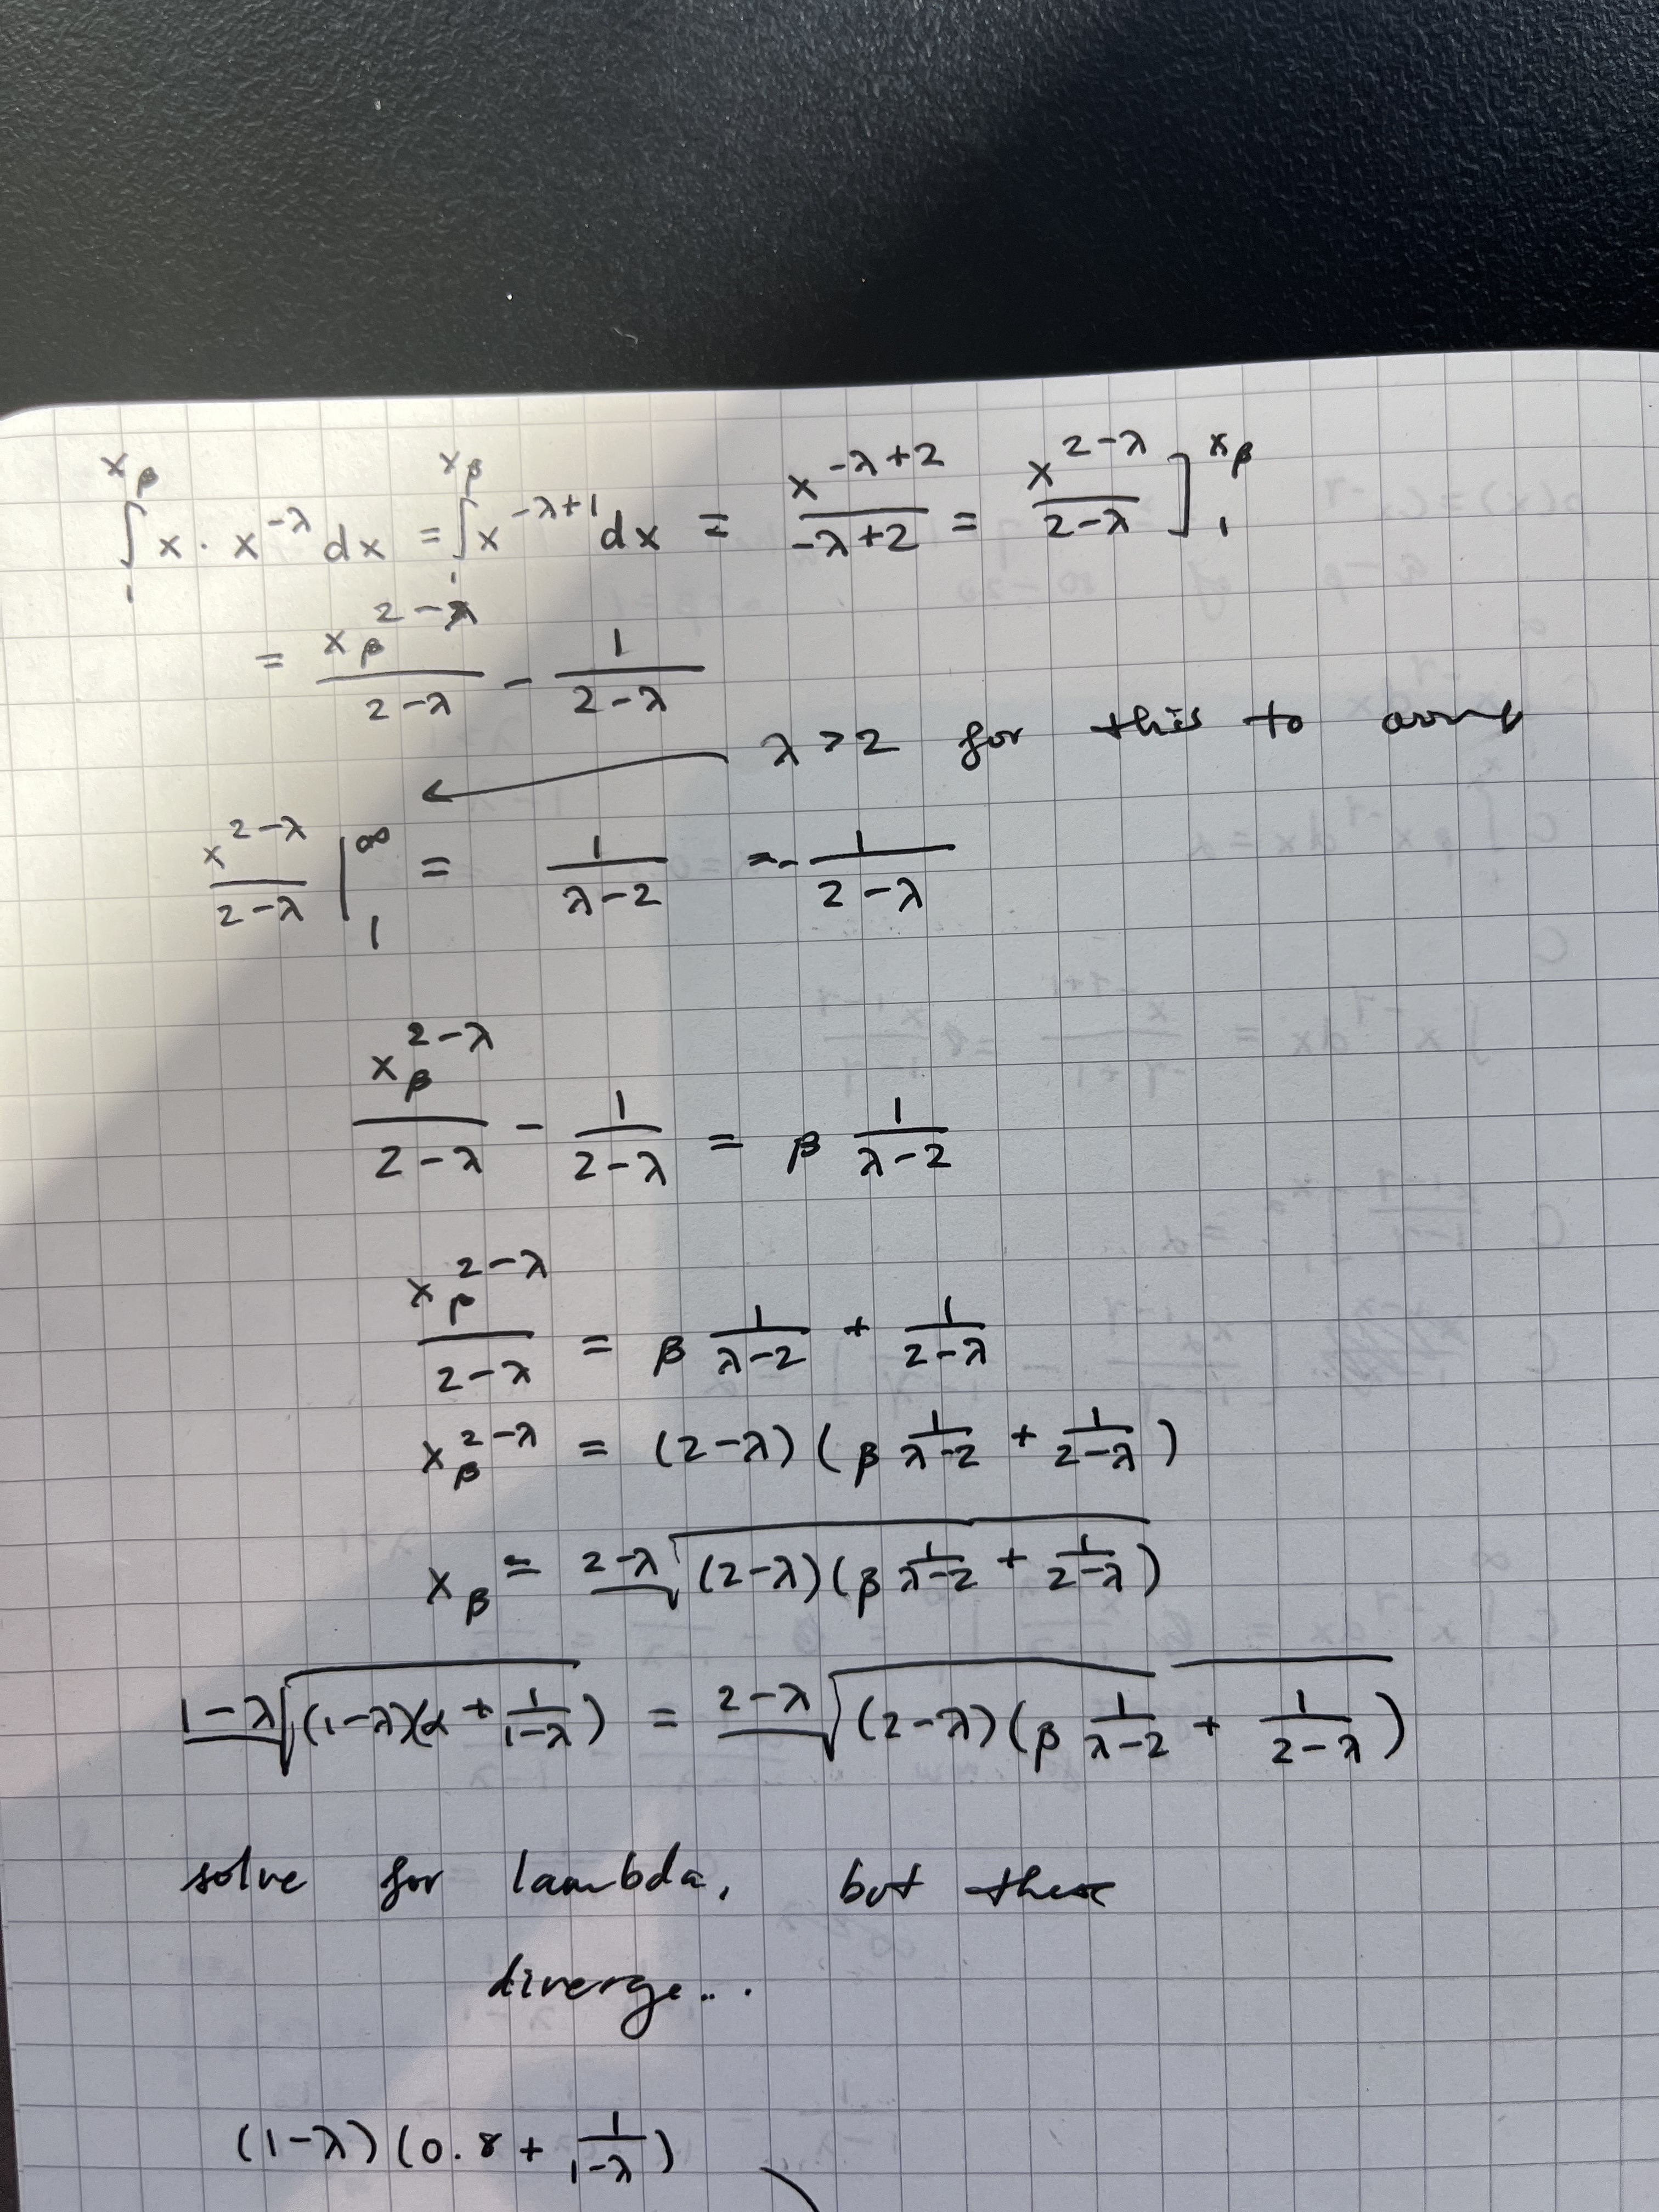 ∫₁^{x_β} x · x^{-λ} dx = ∫₁^{x_β} x^{-λ+1} dx = x^{-λ+2} / (-λ+2) = x^{2-λ} / (2-λ) ]₁^{x_β}
= x_β^{2-λ} / (2-λ) - 1 / (2-λ)
λ > 2 for this to
x^{2-λ} / (2-λ) |₁^∞ = 1 / (λ-2) = - 1 / (2-λ)
x_β^{2-λ} / (2-λ) - 1 / (2-λ) = β 1 / (λ-2)
x_β^{2-λ} / (2-λ) = β 1 / (λ-2) + 1 / (2-λ)
x_β^{2-λ} = (2-λ) ( β 1/(λ-2) + 1/(2-λ) )
x_β = ^{2-λ}√( (2-λ) ( β 1/(λ-2) + 1/(2-λ) ) )
^{1-λ}√( (1-λ)(α + 1/(1-λ)) ) = ^{2-λ}√( (2-λ) ( β 1/(λ-2) + 1/(2-λ) ) )
solve for lambda, but these
diverge...
(1-λ) (0.8 + 1/(1-λ))